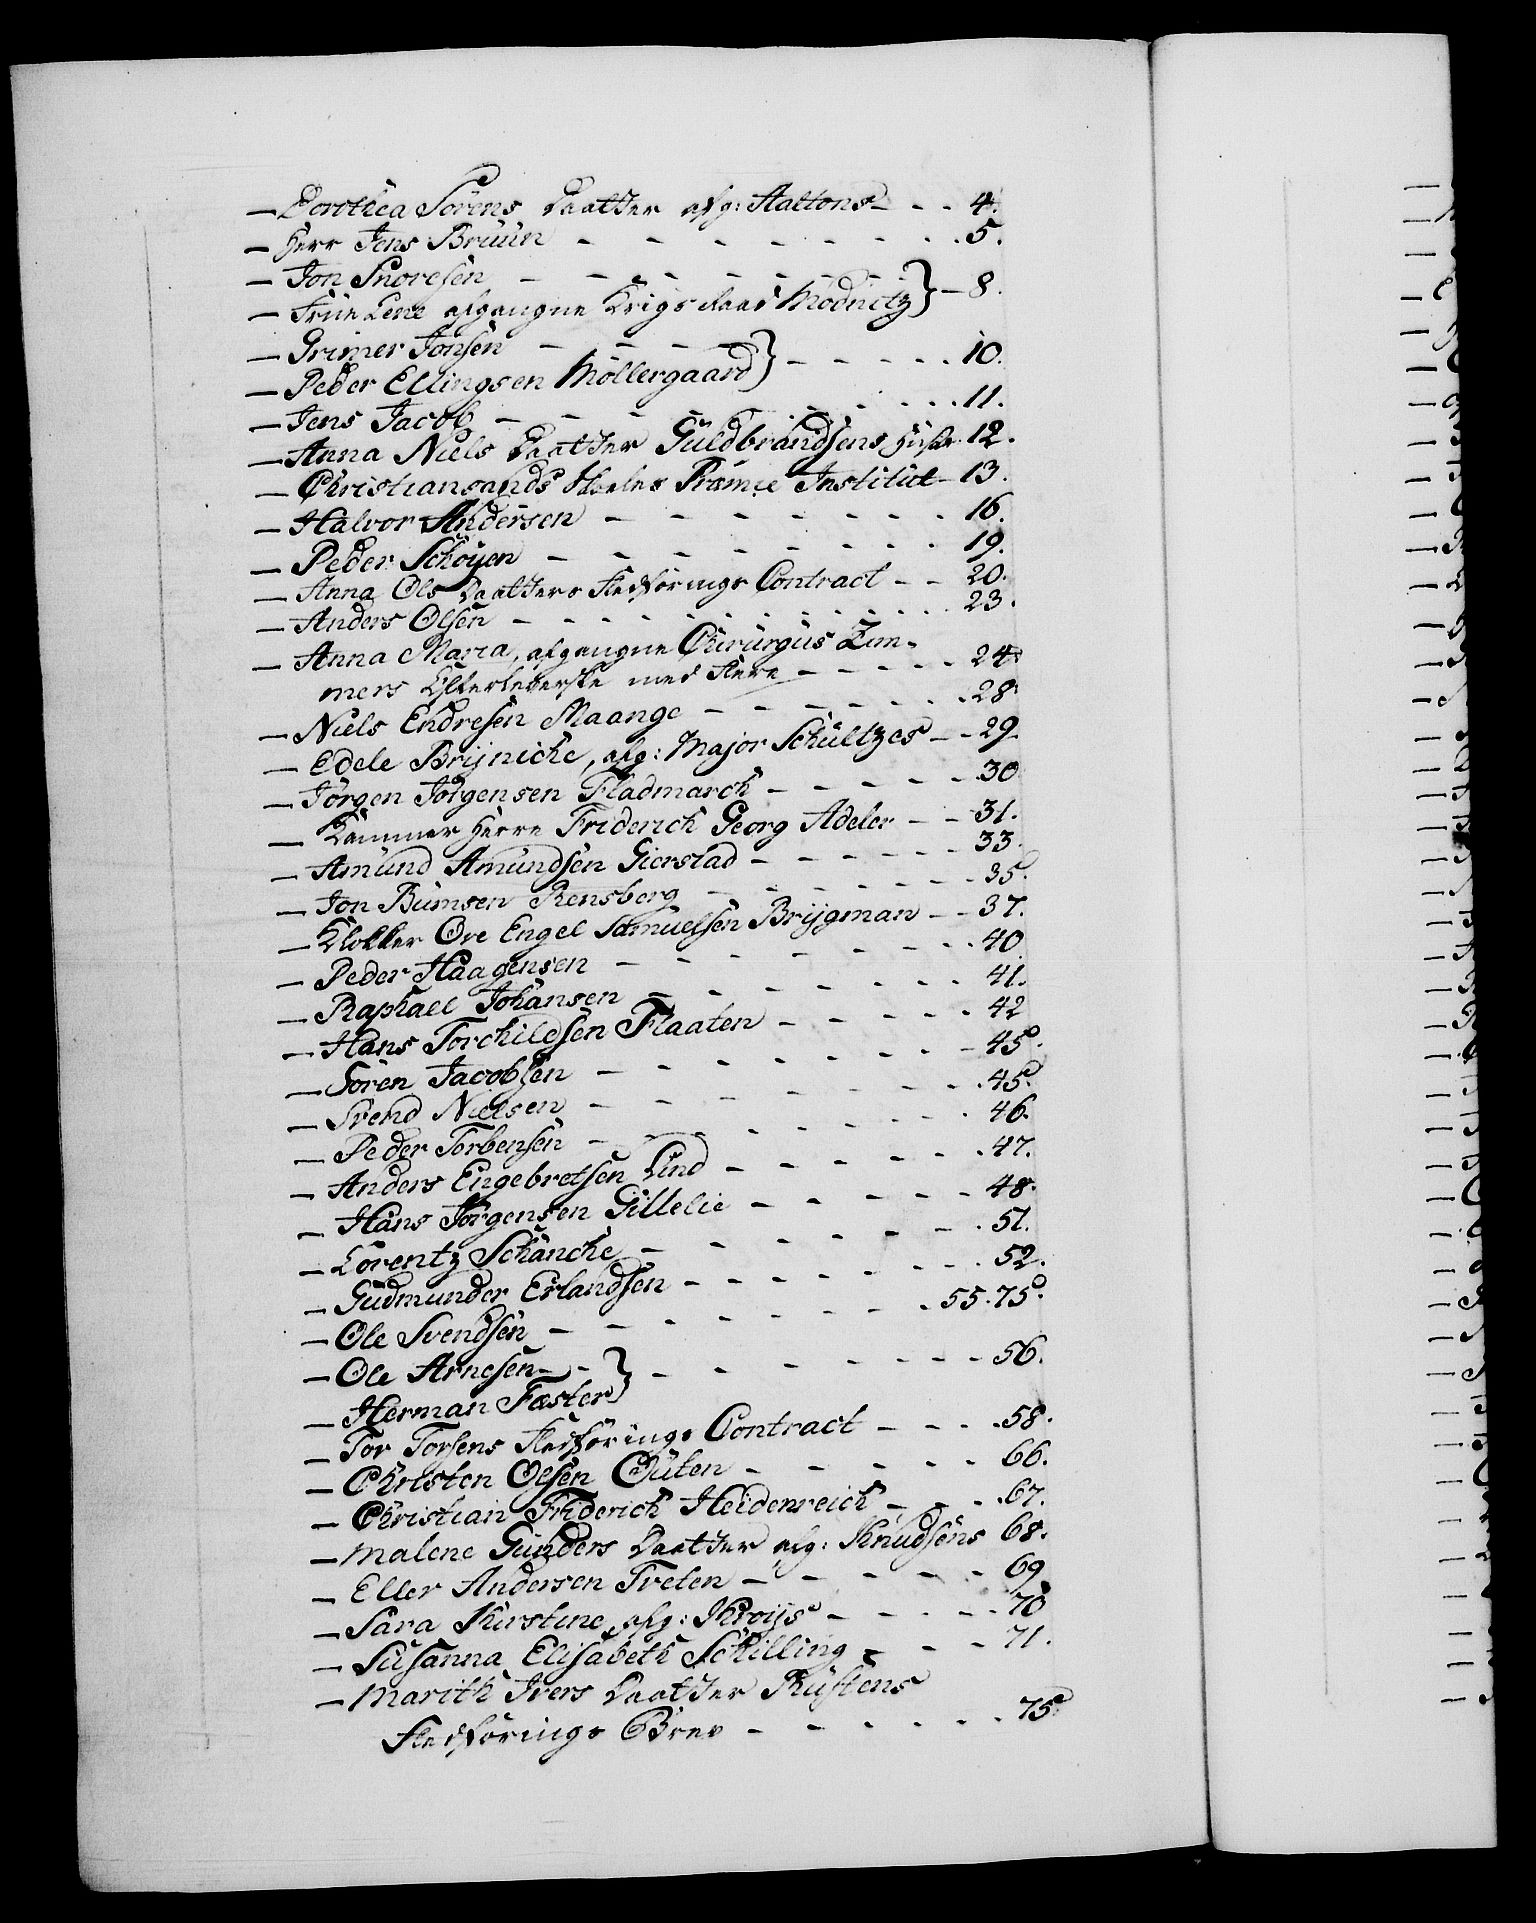 — Dorothea Sörens Daatter afg: Aaltons - - - 4.
— Herr Jens Bruun - - - - - - - 5.
— Jon Snoresen - - - - - - -
— Frue Lene afgangne Krigs Raad Mödnitz } - 8.
— Grimer Jonsen - - - - -
— Peder Ellingsen Möllergaard } - - - - - 10.
— Jens Jacob - - - - - - - - 11.
— Anna Niels Daatter Guldbrandsens Hustr: 12.
— Christiansands Skoeles Præmie Institut - 13.
— Halvor Andersen - - - - - - - 16.
— Peder Schöyen - - - - - - - 19.
— Anna Ols Daatters Fledförings Contract - - 20.
— Anders Olsen - - - - - - - - 23.
— Anna Maria, afgangne Chirurgus Zim-
mers Efterleverske med Flere - - - - 24.
— Niels Endresen Maange - - - - - 28.
— Edele Bryniche, afg: Major Schultzes - - 29.
— Jörgen Jörgensen Fladmarch - - - - - 30
— Kammer Herre Friderich Georg Adeler - - 31.
— Amund Amundsen Gierstad - - - - - 33.
— Jon Bumsen Rensberg - - - - - - 35.
— Klokker Ore Engel Samuelsen Brygman - - 37.
— Peder Haagensen - - - - - - - 40
— Raphael Johansen - - - - - - - 41.
— Hans Torchildsen Flaaten - - - - - 42
— Sören Jacobsen - - - - - - - 45.
— Svend Nielsen - - - - - - - 45.
— Peder Torbensen - - - - - - - 46.
— Anders Engebretsen Lind - - - - - 47.
— Hans Jörgensen Gillelie - - - - - 48.
— Lorentz Schancke - - - - - - - 51.
— Gudmunder Erlandsen - - - - - - 52.
— Ole Svendsen - - - - - - - 55. 75.
— Ole Arnesen - -
— Herman Fæster } - - - - - - - 56.
— Tor Torsens Fledförings Contract - - - - 58.
— Christen Olsen Outen - - - - - 66.
— Christian Friderich Heidenreich - - - 67.
— Malene Gunders Daatter afg: Knudsens 68.
— Eller Andersen Treten - - - - - 69
— Sara Kirstine, afg: Kroys - - - - - 70
— Susanna Elisabeth Schilling - - - 71.
— Marith Ivers Daatter Rustens
Fledförings Brev - - - - - 75.